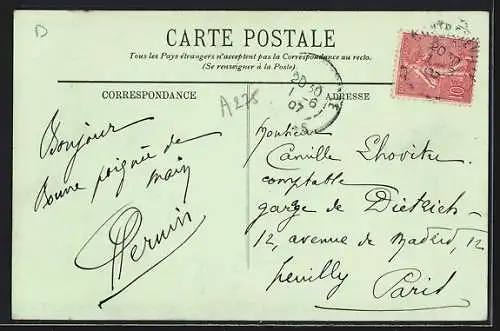 D
CARTE POSTALE
Tous les Pays étrangers n'acceptent pas la Correspondance au recto.
(Se renseigner à la Poste)
CORRESPONDANCE
ADRESSE
A 275
20 30
1 - 6
07
10
Bonjour
Bonne poignée de
main
Monsieur
Camille
comptable
garage de Dietrich
12, avenue de Madrid, 12
Neuilly
Paris